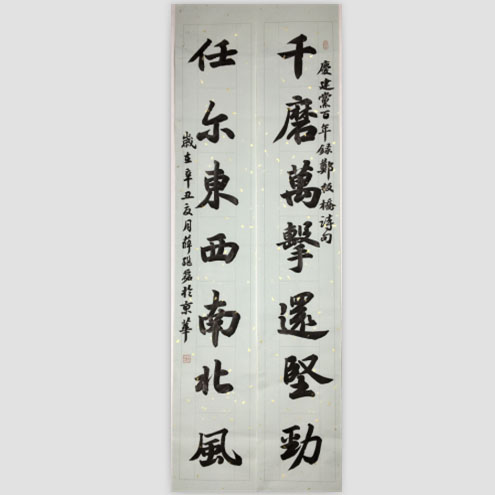 慶建黨百年録鄭板橋詩句
千磨萬擊還堅勁
任尔東西南北風
歲在辛丑夏月薛於京華